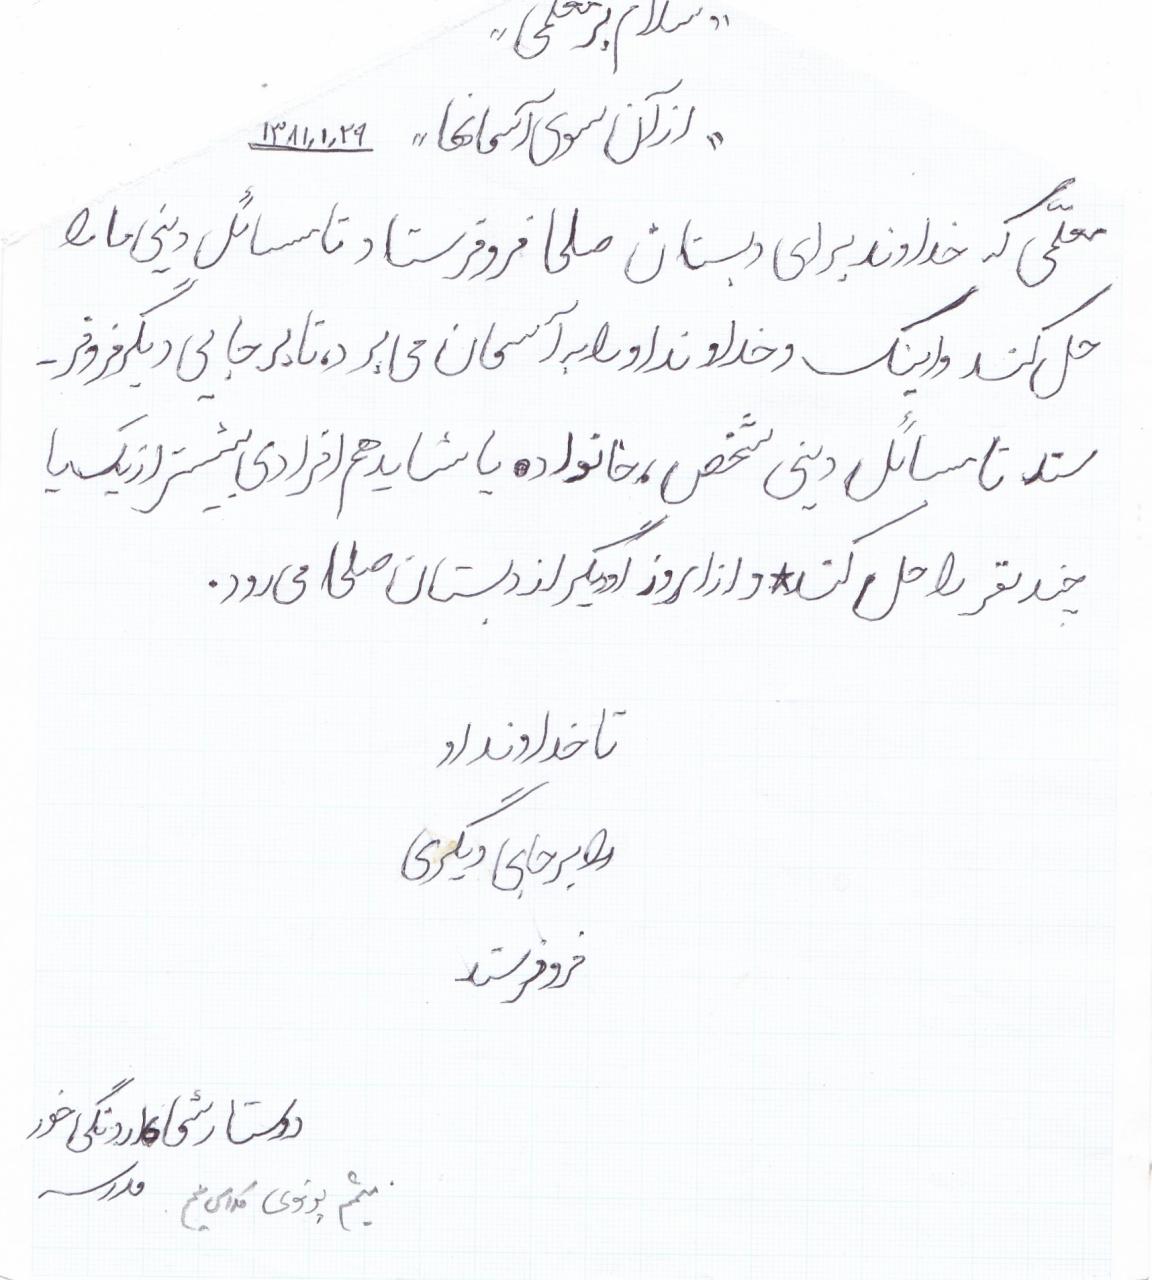 «سلام بر معلمی»
«از آن سوی آسمانها» ۱۳۸۱,۱,۲۹
معلّمی که خداوند برای دبستان صلحا فروفرستاد تا مسائل دینی ما را
حل کند و اینک و خداوند او را به آسمان می برد، تا بر جایی دیگر فروفر-
ستد تا مسائل دینی شخص، خانواده یا شاید هم افرادی بیشتر از یک یا
چند نفر را حل کند* و از امروز او دیگر از دبستان صلحا می رود.
تا خداوند او
را بر جای دیگری
فروفرستد
دوستار شما خور
میثم کلاس
مدرسه